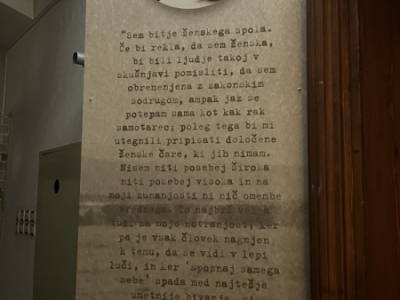 "Sem bitje ženskega spola.
Če bi rekla, da sem ženska,
bi bili ljudje takoj v
skušnjavi pomisliti, da sem
obremenjena z zakonskim
sodrugom, ampak jaz se
potepam sama kot kak rak
samotarec; poleg tega bi mi
utegnili pripisati določene
ženske čare, ki jih nimam.
Nisem niti posebej široka
niti posebej visoka in na
moji zunanjosti ni nič omembe
vrednega. To najbrž velja
tudi za mojo notranjost, ker
pa je vsak človek nagnjen
k temu, da se vidi v lepi
luči, in ker 'spoznaj samega
sebe' spada med najtežje
umetnije bivanja,